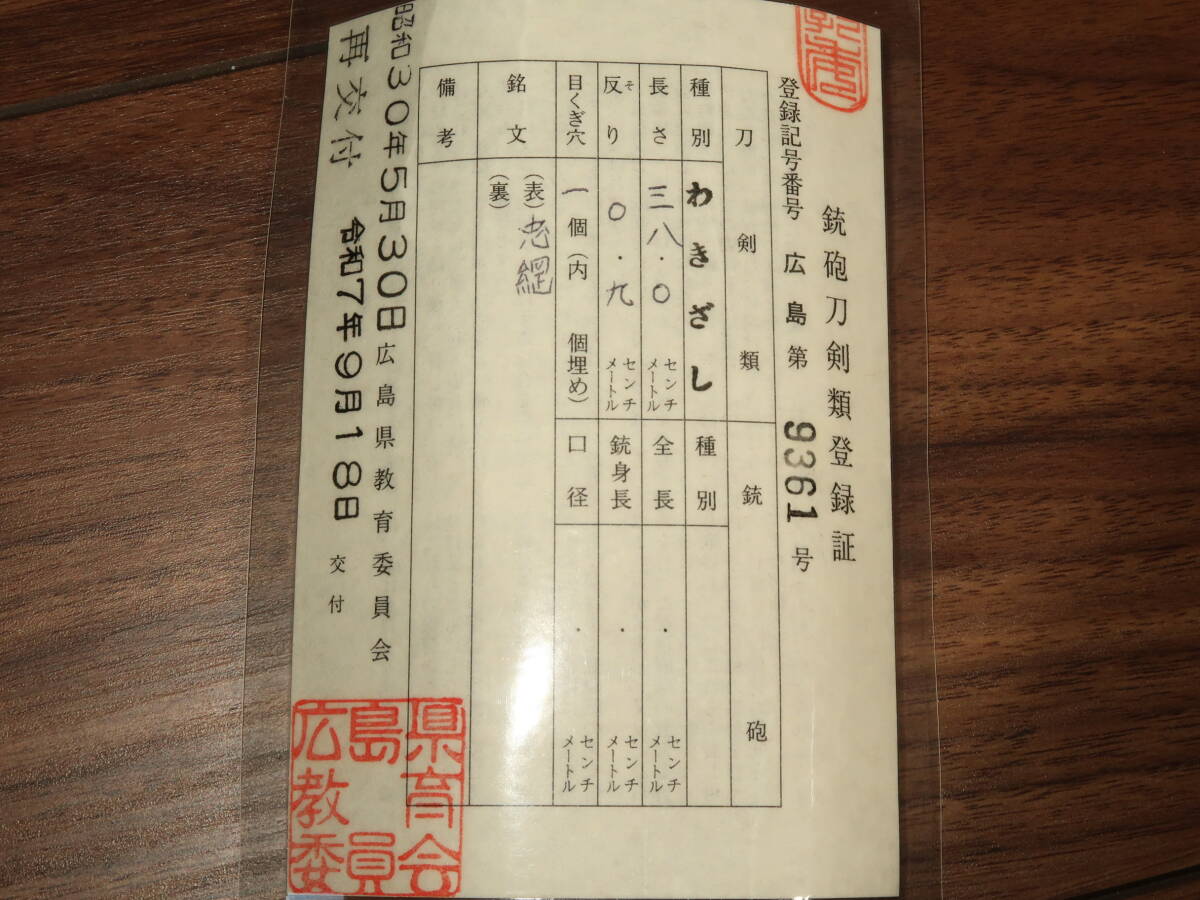 銃砲刀剣類登録証
登録記号番号 広島第 9361 号
刀剣類
種別 わきざし
長さ 三八.〇 センチメートル
反り そ 〇.九 センチメートル
目くぎ穴 一個(内 個埋め)
銘文 (表)忠綱
(裏)
備考
銃砲
種別
全長 . センチメートル
銃身長 . センチメートル
口径 . センチメートル
昭和30年5月30日 広島県教育委員会
再交付 令和7年9月18日 交付
広島県教育委員会